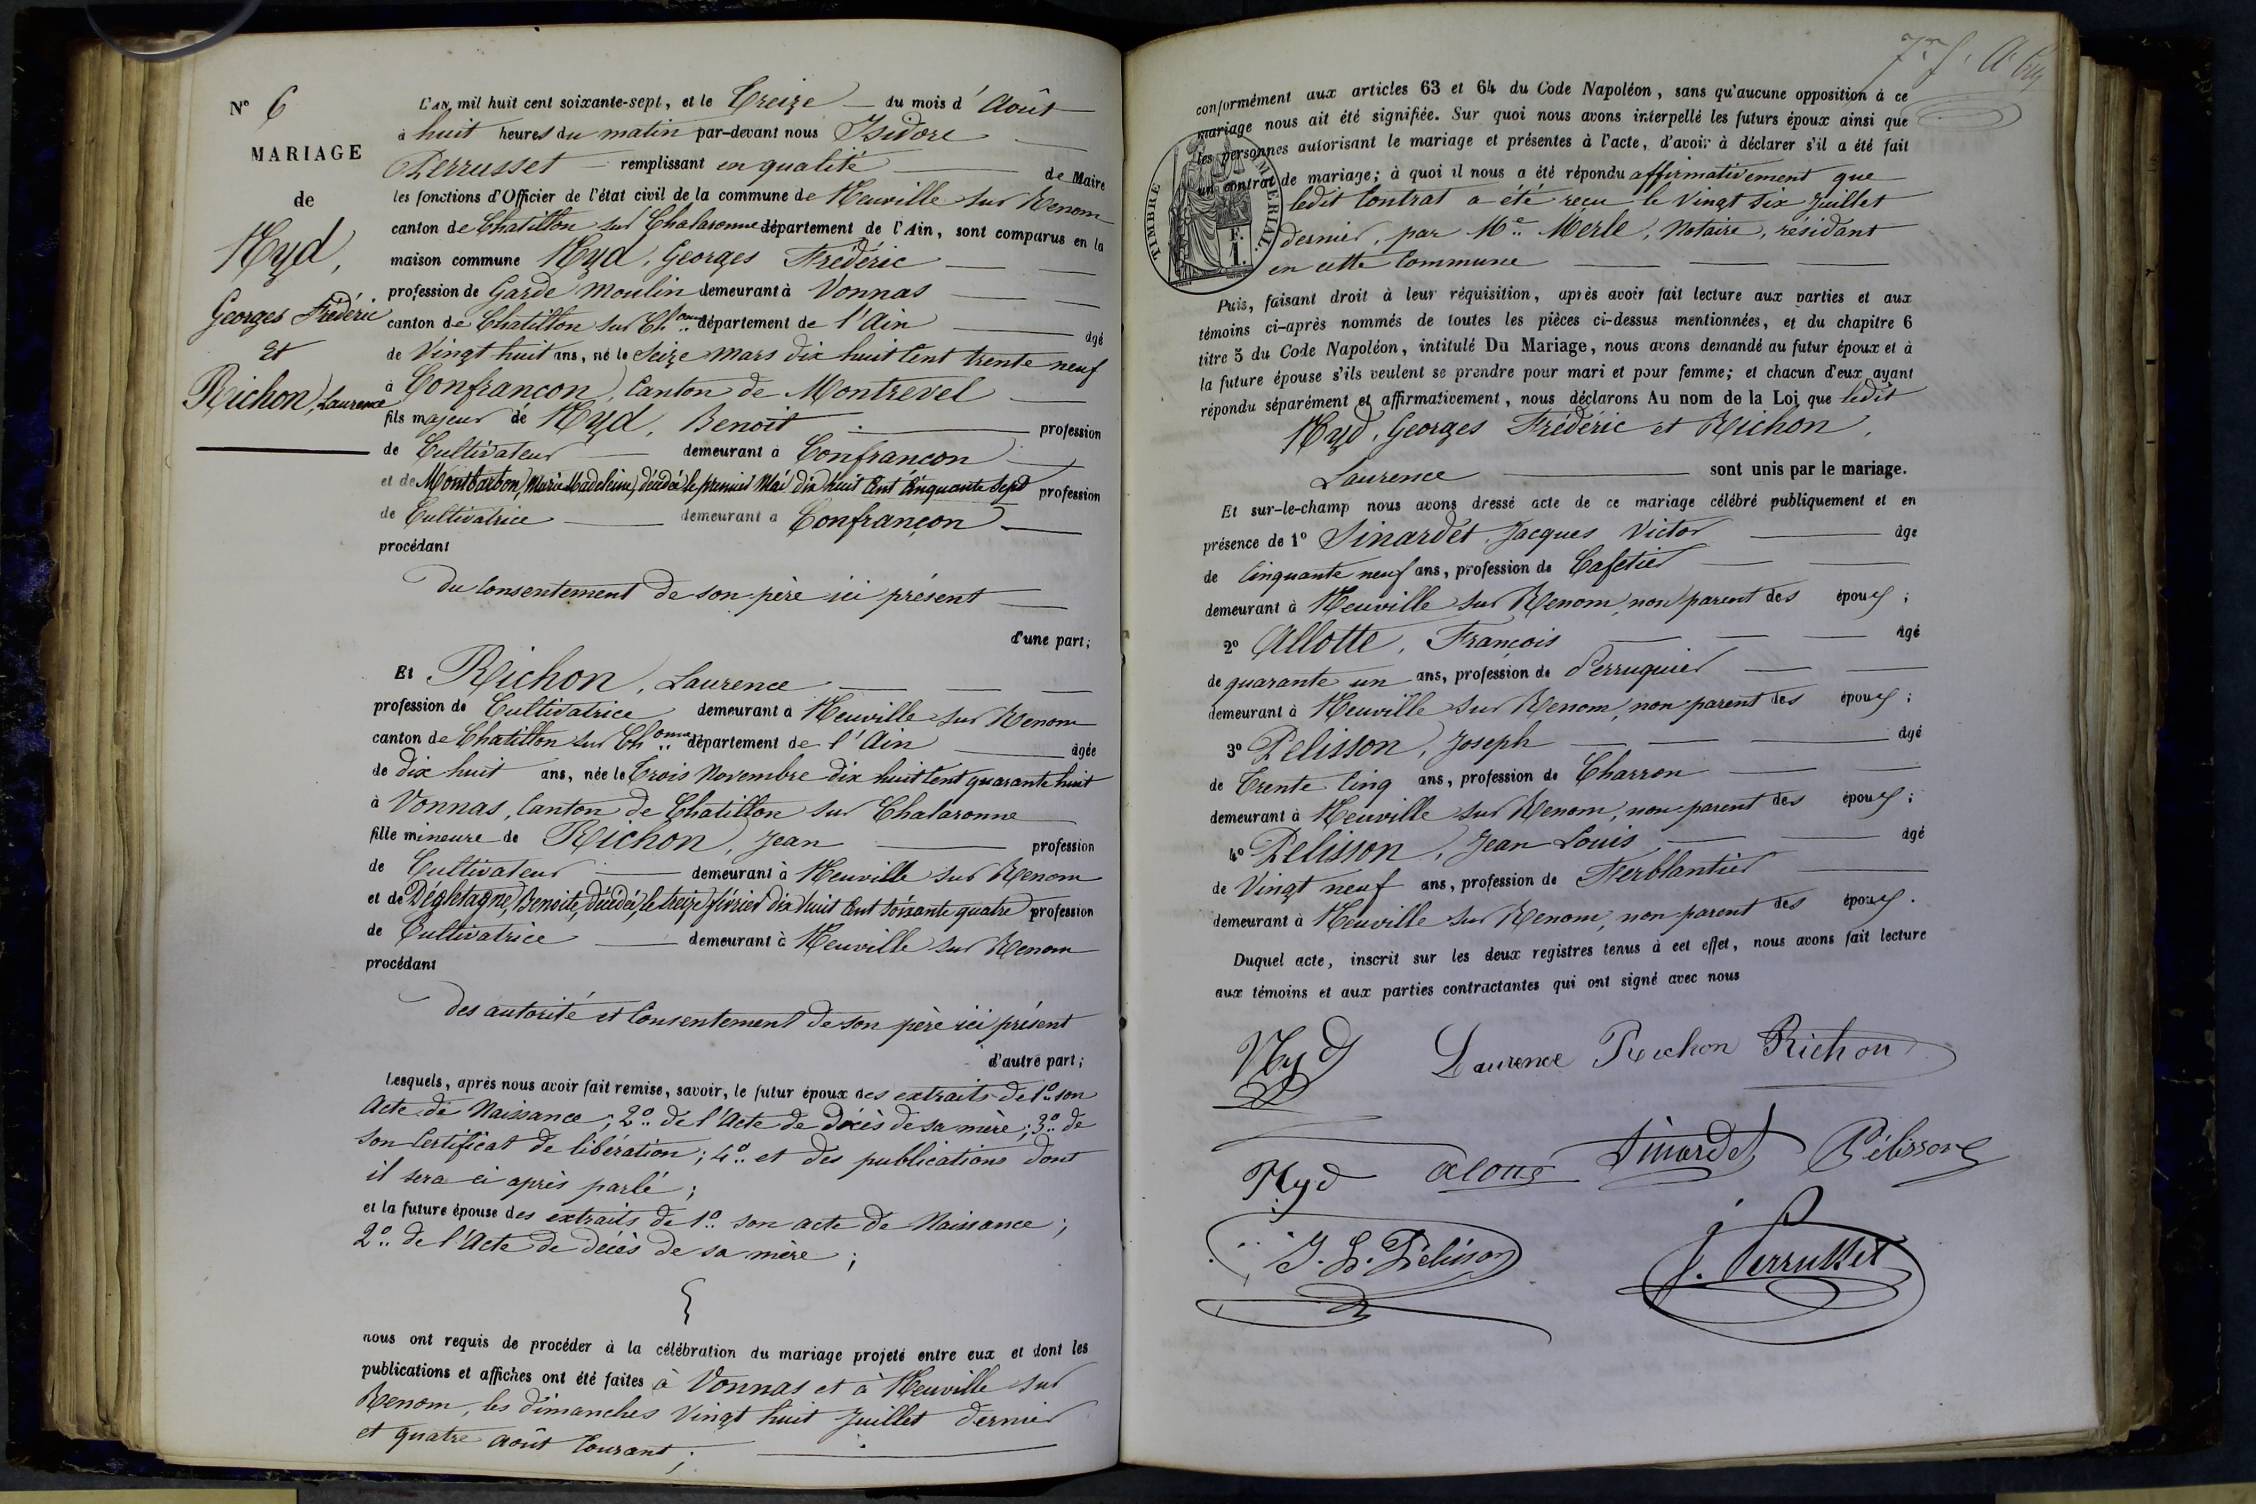 N° 6
MARIAGE
de
Nyd,
Georges Frédéric
Et
Richon, Laurence
L'AN mil huit cent soixante-sept, et le Treize du mois d'Août
à huit heures du matin par-devant nous Isidore
Perrusset remplissant en qualité de Maire
les fonctions d'Officier de l'état civil de la commune de Neuville sur Renom
canton de Chatillon sur Chalaronne département de l'Ain, sont comparus en la
maison commune Nyd, Georges Frédéric
profession de Garde Moulin demeurant à Vonnas
canton de Chatillon sur Ch.onne département de l'Ain âgé
de Vingt huit ans, né le Seize Mars dix huit Cent trente neuf
à Confrancon, Canton de Montrevel
fils majeur de Nyd, Benoit profession
de Cultivateur demeurant à Confrancon
et de Montbarbon, Marie Madeleine, décédée le premier Mai dix huit Cent Cinquante Sept profession
de Cultivatrice demeurant à Confrançon
procédant
du Consentement de son père ici présent
d'une part;
Et Richon, Laurence
profession de Cultivatrice demeurant à Neuville sur Renom
canton de Chatillon sur Ch.onne département de l'Ain âgée
de dix huit ans, née le Trois Novembre dix huit Cent quarante huit
à Vonnas, Canton de Chatillon sur Chalaronne
fille mineure de Richon, Jean profession
de Cultivateur demeurant à Neuville sur Renom
et de Dégletagne, Benoite, Décédée, le treize février dix huit Cent Soixante quatre profession
de Cultivatrice demeurant à Neuville sur Renom
procédant
des autorité et Consentement de son père ici présent
d'autre part;
Lesquels, après nous avoir fait remise, savoir, le futur époux des extraits de 1° son
Acte de Naissance; 2° de l'Acte de décès de sa mère; 3° de
son Certificat de libération; 4° et des publications dont
il sera ci après parlé;
et la future épouse des extraits de 1° son acte de Naissance;
2° de l'Acte de décès de sa mère;
nous ont requis de procéder à la célébration du mariage projeté entre eux et dont les
publications et affiches ont été faites à Vonnas et à Neuville sur
Renom, les dimanches Vingt huit Juillet dernier
et quatre Août Courant;
conformément aux articles 63 et 64 du Code Napoléon, sans qu'aucune opposition à ce
mariage nous ait été signifiée. Sur quoi nous avons interpellé les futurs époux ainsi que
les personnes autorisant le mariage et présentes à l'acte, d'avoir à déclarer s'il a été fait
un contrat de mariage; à quoi il nous a été répondu affirmativement que
ledit Contrat a été reçu le Vingt Six Juillet
dernier, par Me Merle, Notaire, résidant
en cette Commune
TIMBRE IMPÉRIAL.
1. F.
Puis, faisant droit à leur réquisition, après avoir fait lecture aux parties et aux
témoins ci-après nommés de toutes les pièces ci-dessus mentionnées, et du chapitre 6
titre 5 du Code Napoléon, intitulé Du Mariage, nous avons demandé au futur époux et à
la future épouse s'ils veulent se prendre pour mari et pour femme; et chacun d'eux ayant
répondu séparément et affirmativement, nous déclarons Au nom de la Loi que ledit
Nyd, Georges Frédéric et Richon,
Laurence sont unis par le mariage.
Et sur-le-champ nous avons dressé acte de ce mariage célébré publiquement et en
présence de 1° Sinardet, Jacques Victor âgé
de Cinquante neuf ans, profession de Cafetier
demeurant à Neuville sur Renom, non parent des époux;
2° Allotte, François âgé
de quarante un ans, profession de Perruquier
demeurant à Neuville sur Renom, non parent des époux;
3° Pelisson, Joseph âgé
de Trente Cinq ans, profession de Charron
demeurant à Neuville sur Renom, non parent des époux;
4° Pelisson, Jean Louis âgé
de Vingt neuf ans, profession de Ferblantier
demeurant à Neuville sur Renom, non parent des époux.
Duquel acte, inscrit sur les deux registres tenus à cet effet, nous avons fait lecture
aux témoins et aux parties contractantes qui ont signé avec nous
Nyd Laurence Richon Richon
Nyd Sinardet Pélisson
J. L. Pelisson J. Perrusset